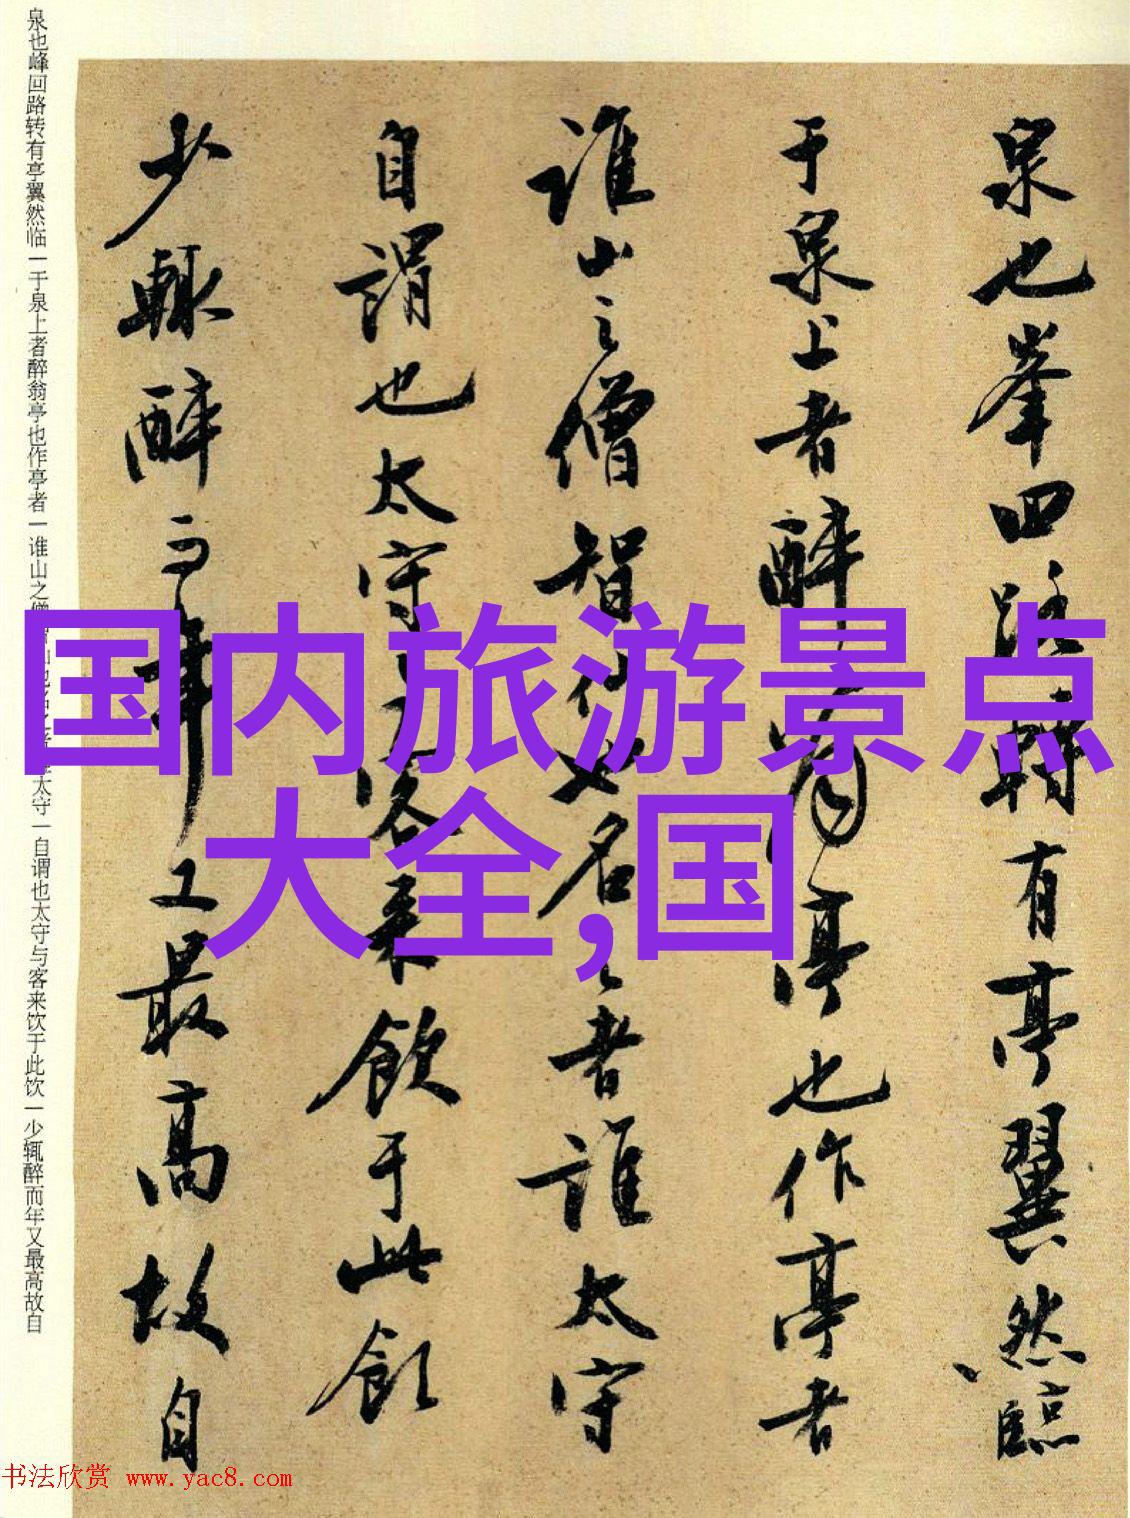 国内旅游景点
大全,国
泉也峯回路轉有亭翼然臨
于泉上者醉翁亭也作亭者
誰山之僧智仙也名之者誰太守
自謂也太守與客来飲于此飲
少輙醉而年又最高故自
泉也峰回路转有亭翼然临一于泉上者醉翁亭也作亭者一谁山之僧太守一自谓也太守与客来饮于此饮一少辄醉而年又最高故自
书法欣赏 www.yac8.com